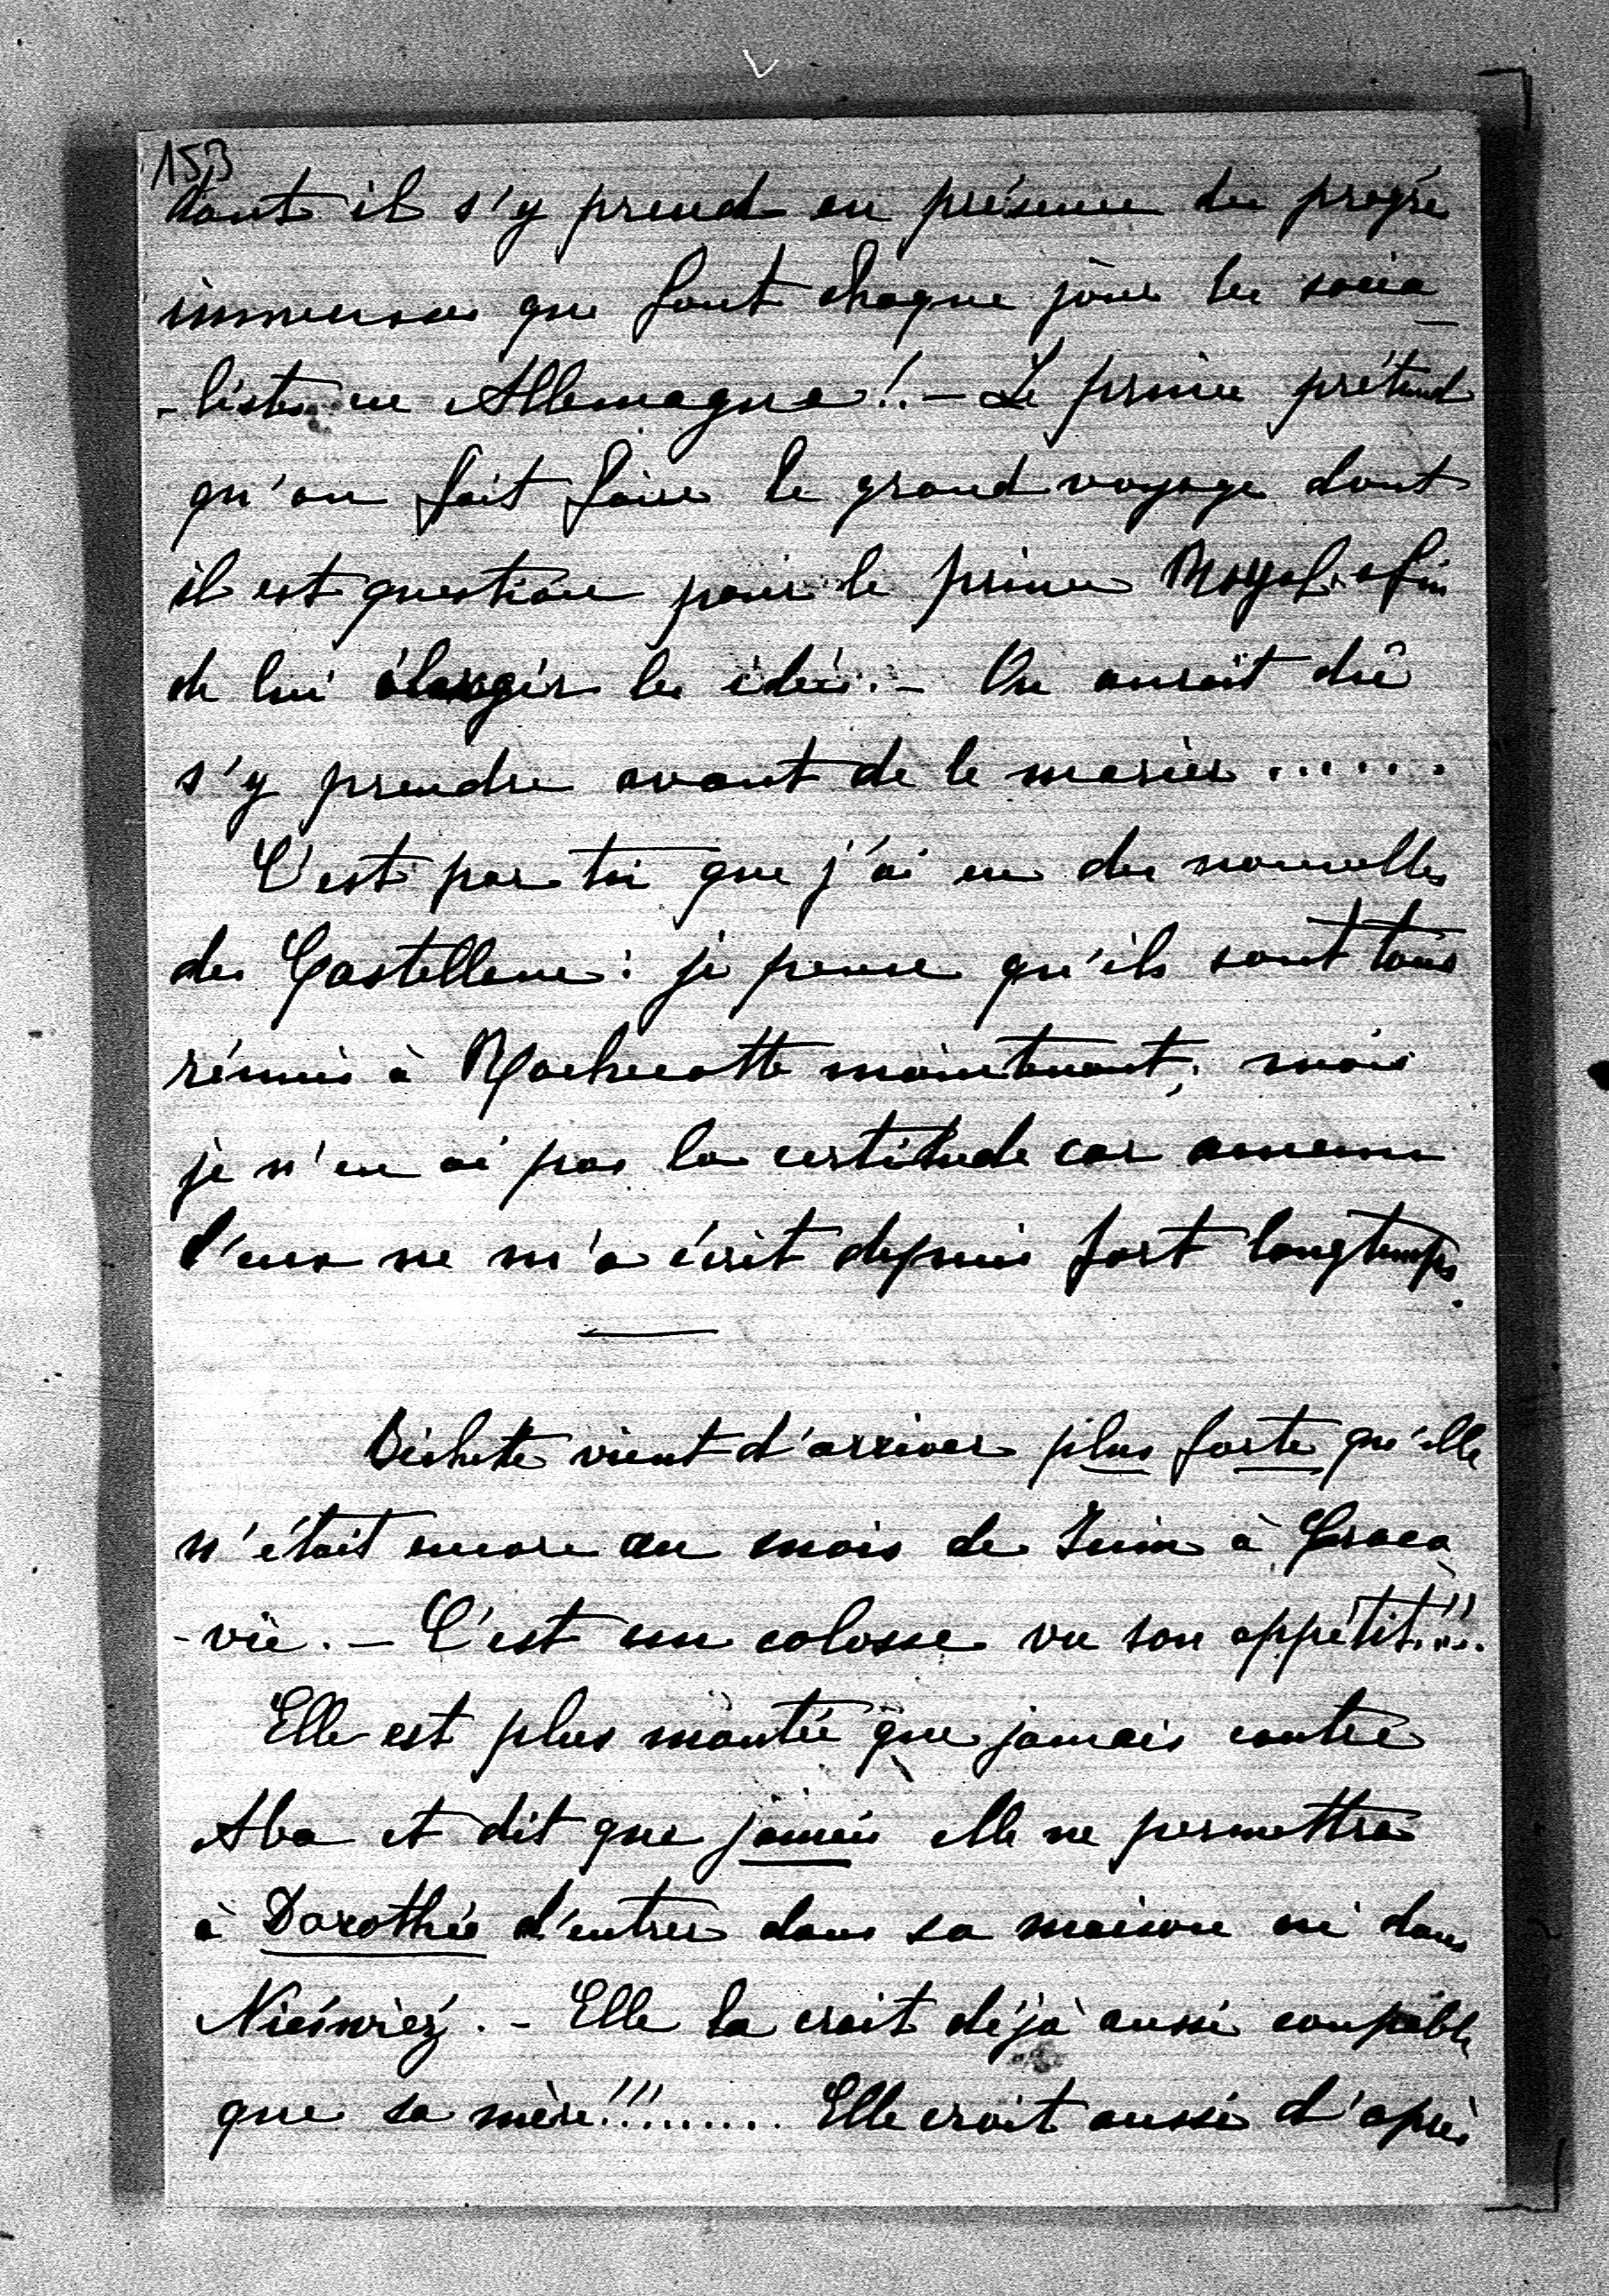 153
dont il s'y prend en présence des progrès
immenses que font chaque jour les socia-
-listes en Allemagne!. — Le prince prétend
qu'on fait faire le grand voyage dont
il est question pour le prince Royal afin
de lui élargir les idées. — On aurait dû
s'y prendre avant de le marier ......
C'est par toi que j'ai eu des nouvelles
des Castellane: je pense qu'ils sont tous
réunis à Rochecotte maintenant; mais
je n'en ai pas la certitude car aucun
d'eux ne m'a écrit depuis fort longtemps.
Bichette vient d'arriver plus forte qu'elle
n'était encore au mois de Juin à Craco
-vie. — C'est un colosse vu son appétit!!!
Elle est plus montée que jamais contre
Aba et dit que jamais elle ne permettra
à Dorothée d'entrer dans sa maison ni dans
Nieświéz. — Elle la croit déjà aussi coupable
que sa mère!!!........ Elle croit aussi d'après